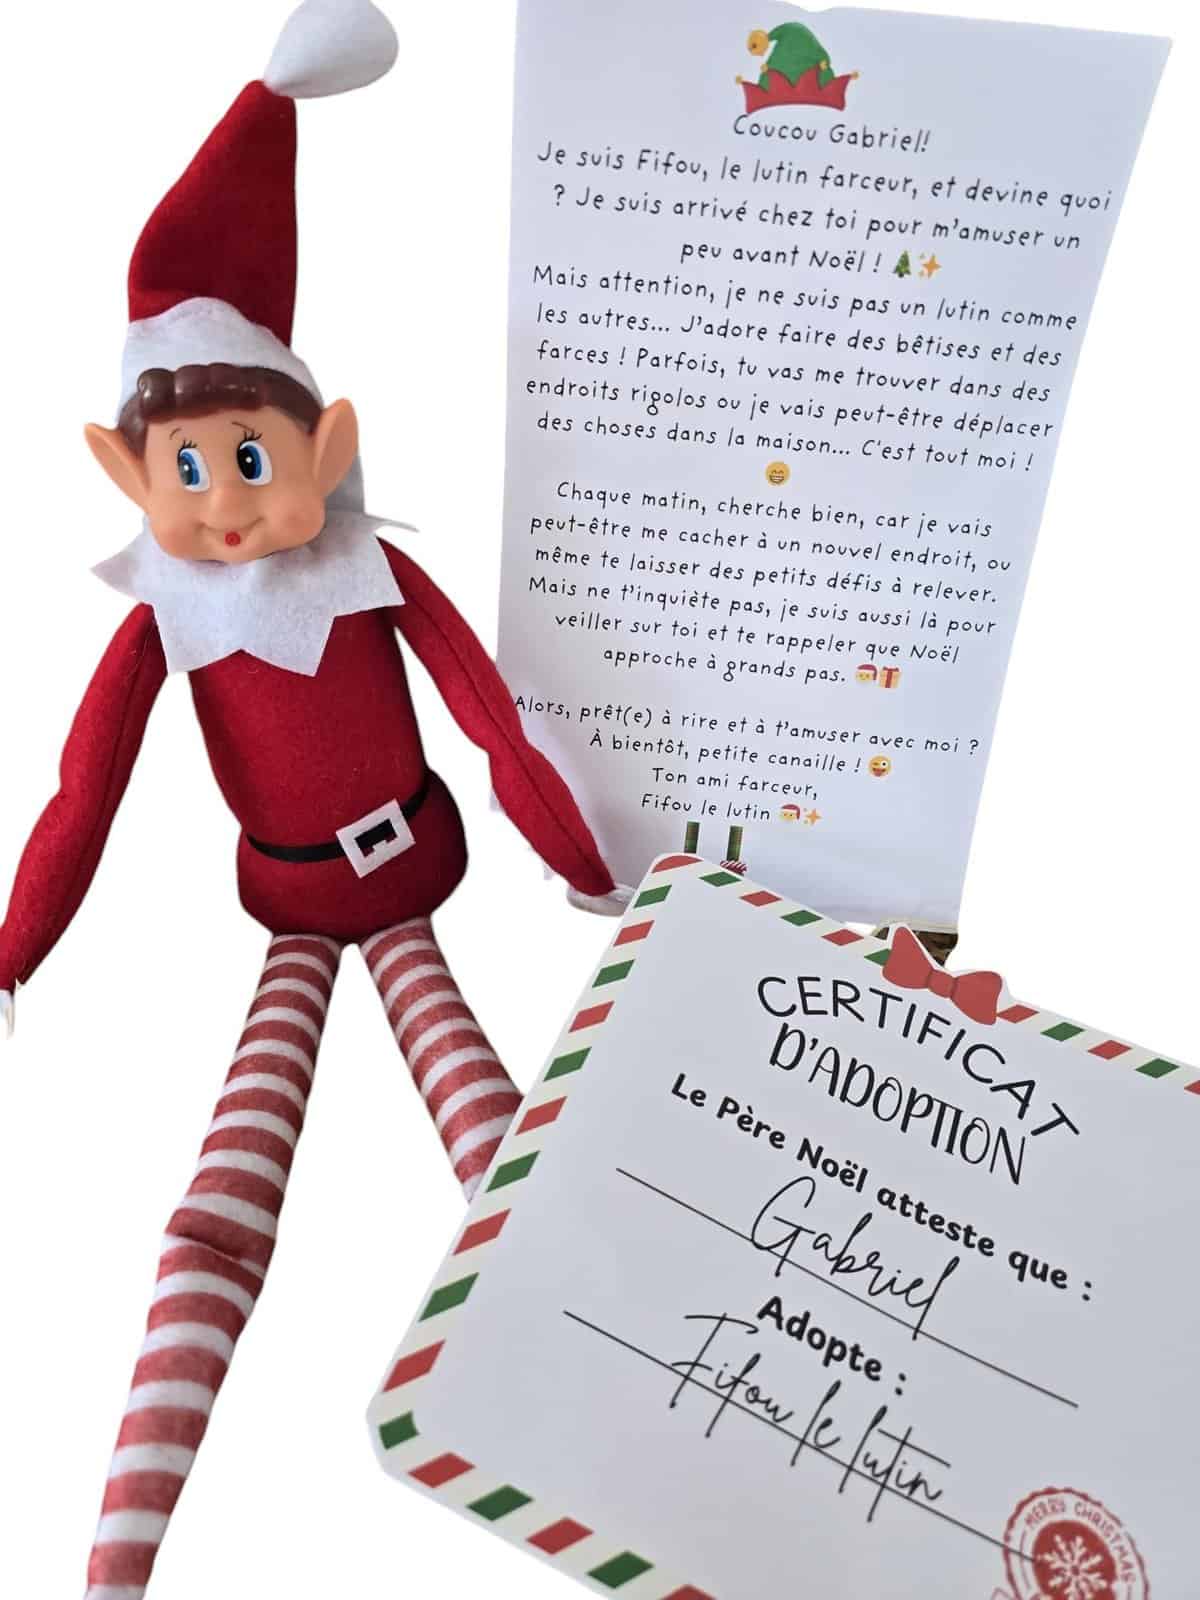 Coucou Gabriel!
Je suis Fifou, le lutin farceur, et devine quoi
? Je suis arrivé chez toi pour m'amuser un
peu avant Noël ! 🎄✨
Mais attention, je ne suis pas un lutin comme
les autres... J'adore faire des bêtises et des
farces ! Parfois, tu vas me trouver dans des
endroits rigolos ou je vais peut-être déplacer
des choses dans la maison... C'est tout moi !
😁
Chaque matin, cherche bien, car je vais
peut-être me cacher à un nouvel endroit, ou
même te laisser des petits défis à relever.
Mais ne t'inquiète pas, je suis aussi là pour
veiller sur toi et te rappeler que Noël
approche à grands pas. 🎅🎁
Alors, prêt(e) à rire et à t'amuser avec moi ?
À bientôt, petite canaille ! 😜
Ton ami farceur,
Fifou le lutin 🎅✨
CERTIFICAT
D'ADOPTION
Le Père Noël atteste que :
Gabriel
Adopte :
Fifou le lutin
MERRY CHRISTMAS